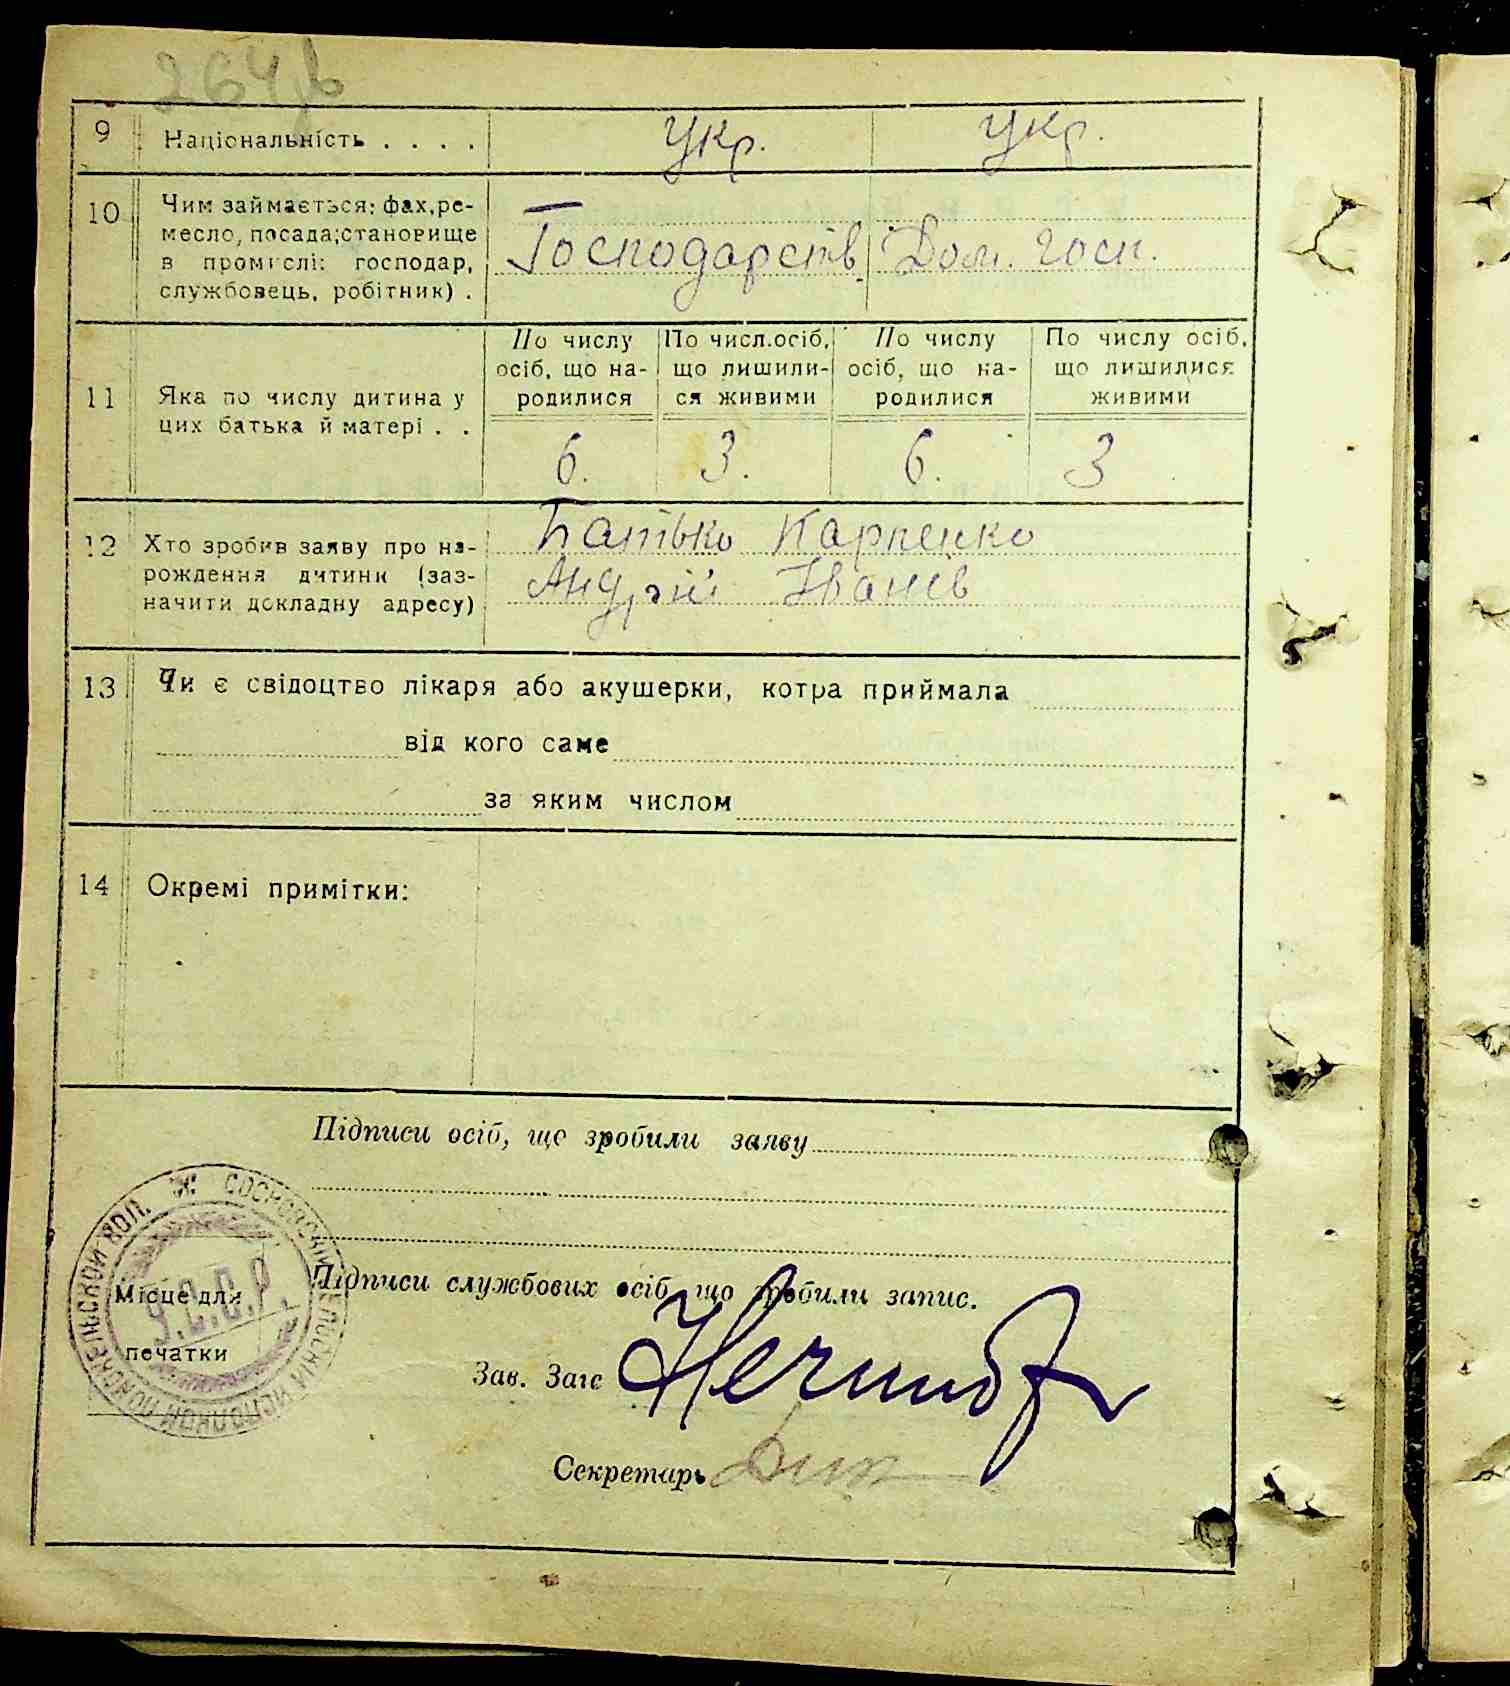 9 Національність . . . . Укр. Укр.
10 Чим займається: фах, ре-
месло, посада; становище
в промислі: господар,
службовець, робітник) .
Господарств. Дом. госп.
11 Яка по числу дитина у
цих батька й матері . .
По числу
осіб, що на-
родилися
По числ. осіб,
що лишили-
ся живими
По числу
осіб, що на-
родилися
По числу осіб,
що лишилися
живими
6. 3. 6. 3
12 Хто зробив заяву про на-
рождення дитини (заз-
начити докладну адресу)
Батько Карпенко
Андрій Іванів
13 Чи є свідоцтво лікаря або акушерки, котра приймала
від кого саме
за яким числом
14 Окремі примітки:
Підписи осіб, що зробили заяву
Підписи службових осіб, що зробили запис.
Місце для
печатки
У.С.С.Р.
Зав. Загс
Секретарь